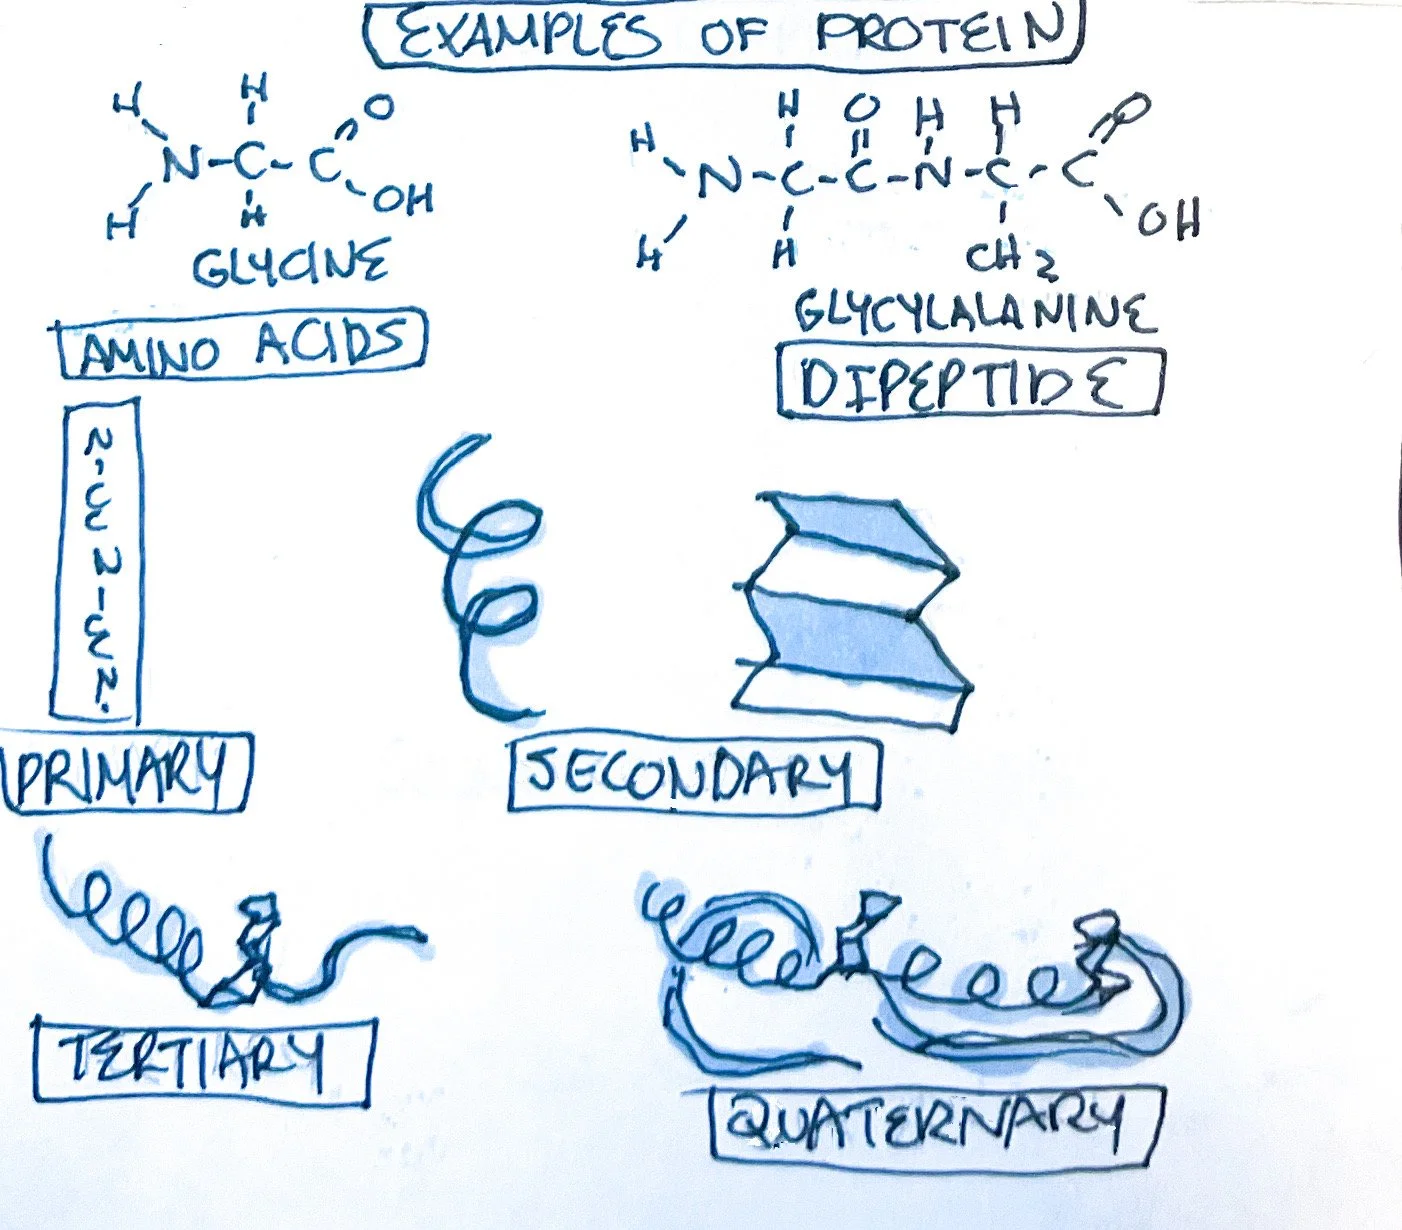 EXAMPLES OF PROTEIN
H H O
N-C-C
H H OH
GLYCINE
AMINO ACIDS
H H O H H O
N-C-C-N-C-C
H H CH2 OH
GLYCYLALANINE
DIPEPTIDE
PRIMARY
SECONDARY
TERTIARY
QUATERNARY